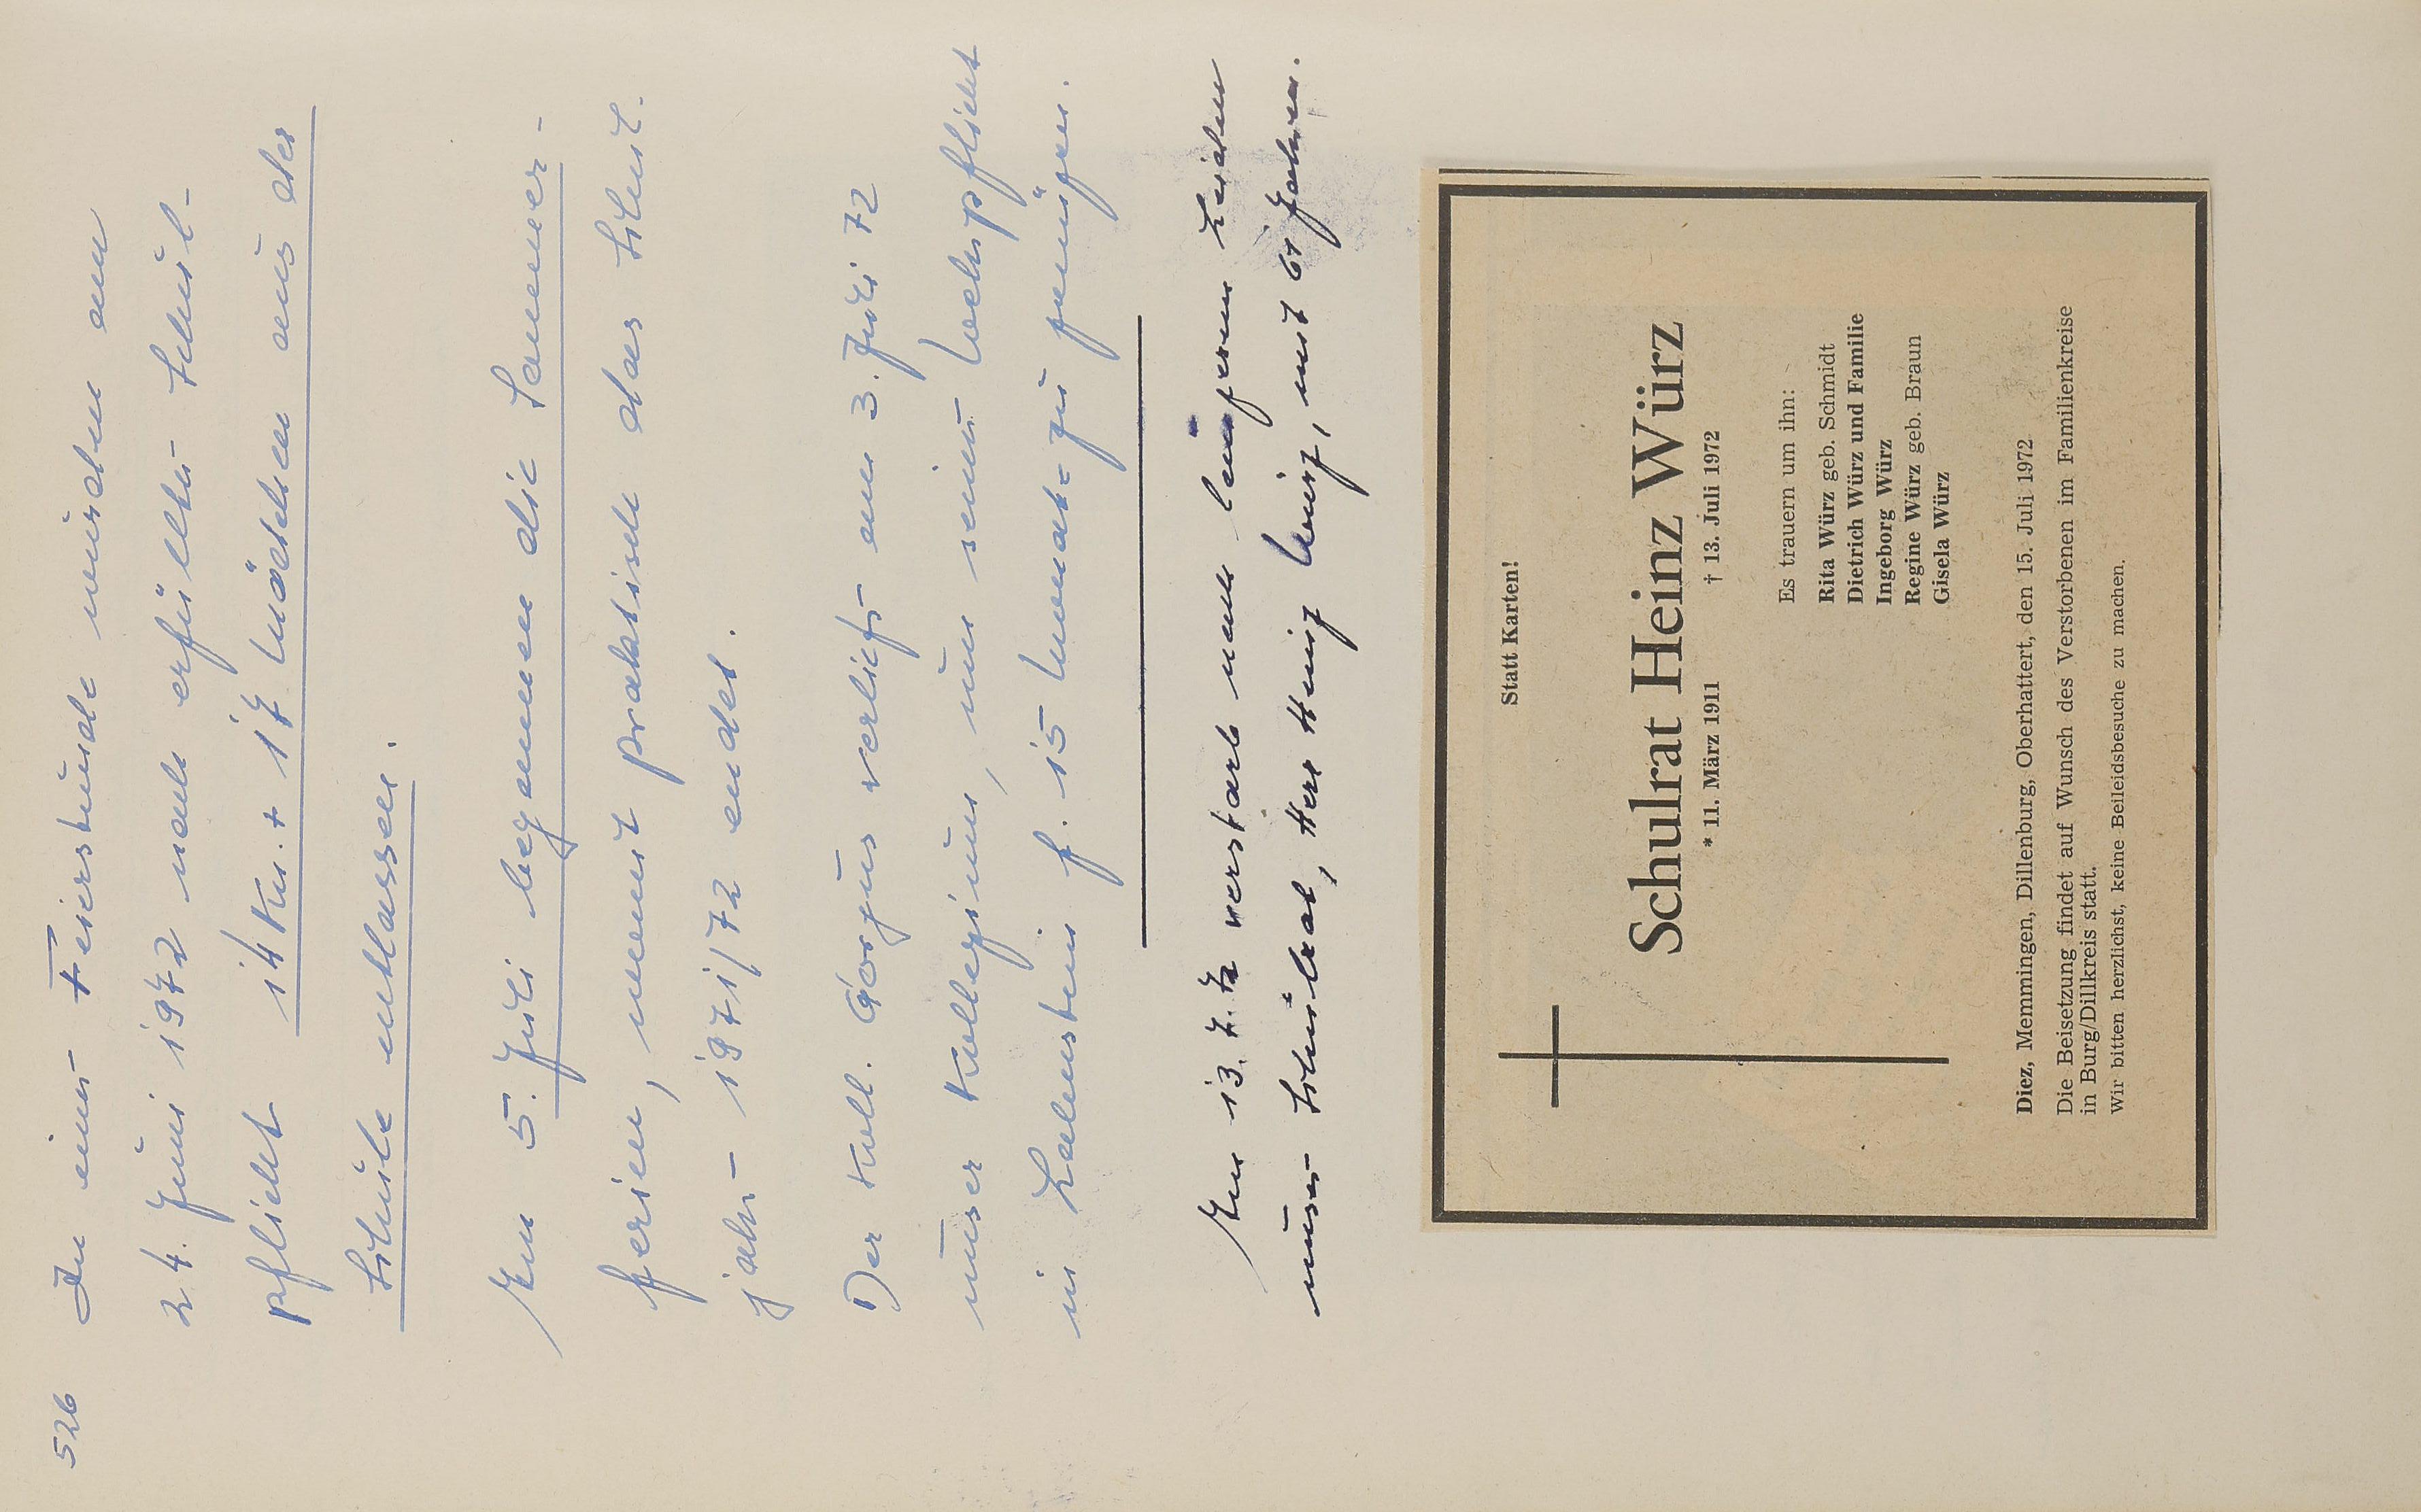 526
In einer Feierstunde wurden am
24. Juni 1972 nach erfüllter Schul-
pflicht 14 Kn. + 17 Mädchen aus der
Schule entlassen.
Am 5. Juli begannen die Sommer-
ferien, womit praktisch das Schul-
jahr 1971/72 endet.
Der Koll. Görgus verließ am 3. Juli 72
unser Kollegium, um seiner Wehrpflicht
in f. 15 Monate zu genügen.
Am 13. 7. 72 verstarb nach längerem Leiden
unser Schulrat, Herr Heinz Würz, mit 61 Jahren.
Statt Karten!
Schulrat Heinz Würz
* 11. März 1911 † 13. Juli 1972
Es trauern um ihn:
Rita Würz geb. Schmidt
Dietrich Würz und Familie
Ingeborg Würz
Regine Würz geb. Braun
Gisela Würz
Diez, Memmingen, Dillenburg, Oberhattert, den 15. Juli 1972
Die Beisetzung findet auf Wunsch des Verstorbenen im Familienkreise
in Burg/Dillkreis statt.
Wir bitten herzlichst, keine Beileidsbesuche zu machen.